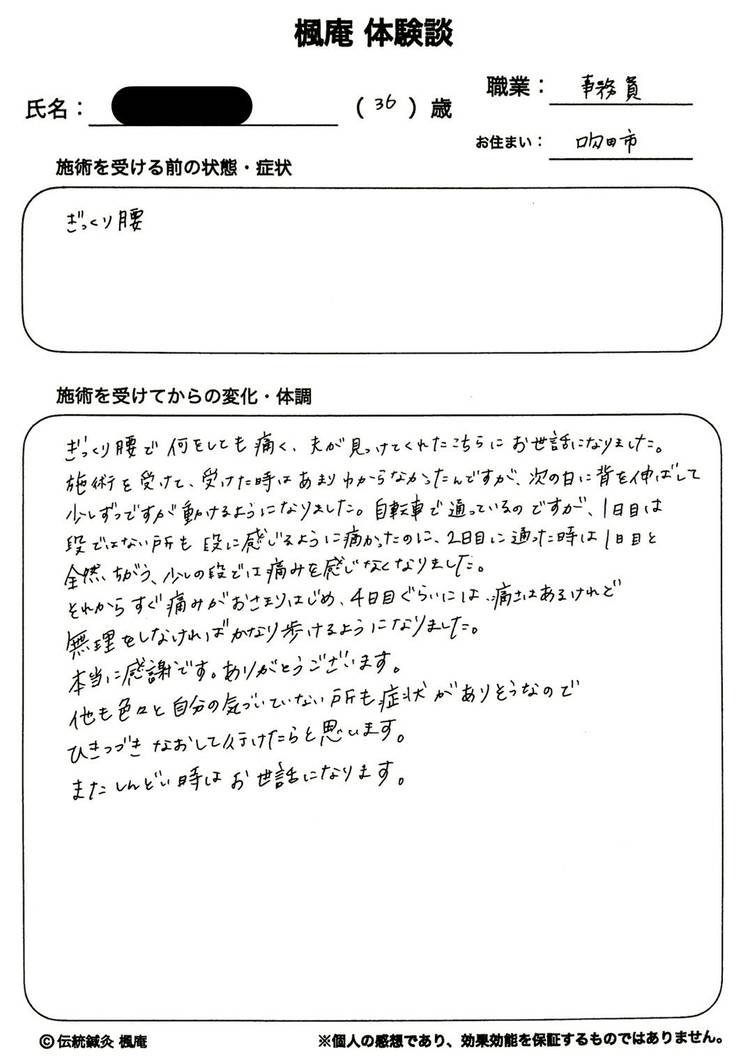 楓庵 体験談
職業：事務員
氏名：（36）歳
お住まい：吹田市
施術を受ける前の状態・症状
ぎっくり腰
施術を受けてからの変化・体調
ぎっくり腰で何をしても痛く、夫が見つけてくれたこちらにお世話になりました。
施術を受けて、受けた時はあまりわからなかったんですが、次の日に背を伸ばして
少しずつですが動けるようになりました。自転車で通っているのですが、1日目は
段ではない所も段に感じるように痛かったのに、2日目に通った時は1日目と
全然ちがう、少しの段では痛みを感じなくなりました。
それからすぐ痛みがおさまりはじめ、4日目ぐらいには、痛さはあるけれど
無理をしなければかなり歩けるようになりました。
本当に感謝です。ありがとうございます。
他も色々と自分の気づいていない所も症状がありそうなので
ひきつづきなおして行けたらと思います。
またしんどい時はお世話になります。
©伝統鍼灸 楓庵
※個人の感想であり、効果効能を保証するものではありません。